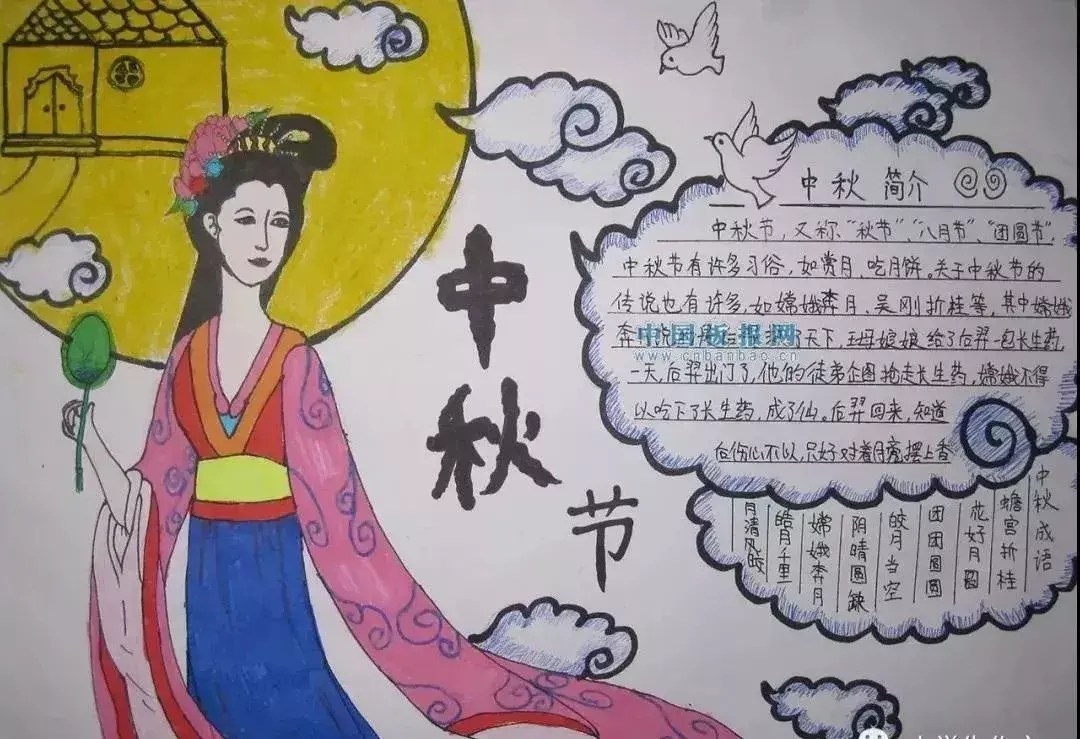 中秋节
中秋 简介
中秋节，又称“秋节”、“八月节”、“团圆节”，
中秋节有许多习俗，如赏月、吃月饼。关于中秋节的
传说也有许多，如嫦娥奔月、吴刚折桂等，其中嫦娥
奔 了天下，王母娘娘给了后羿一包长生药，
一天，后羿出门了，他的徒弟企图抢走长生药，嫦娥不得
以吃下了长生药，成了仙。后羿回来，知道
后伤心不以，只好对着月 摆上香
中国板报网
www.cnbanbao.cn
中秋成语
蟾宫折桂
花好月圆
团团圆圆
皎月当空
阴晴圆缺
嫦娥奔月
皓月千里
月清风皎